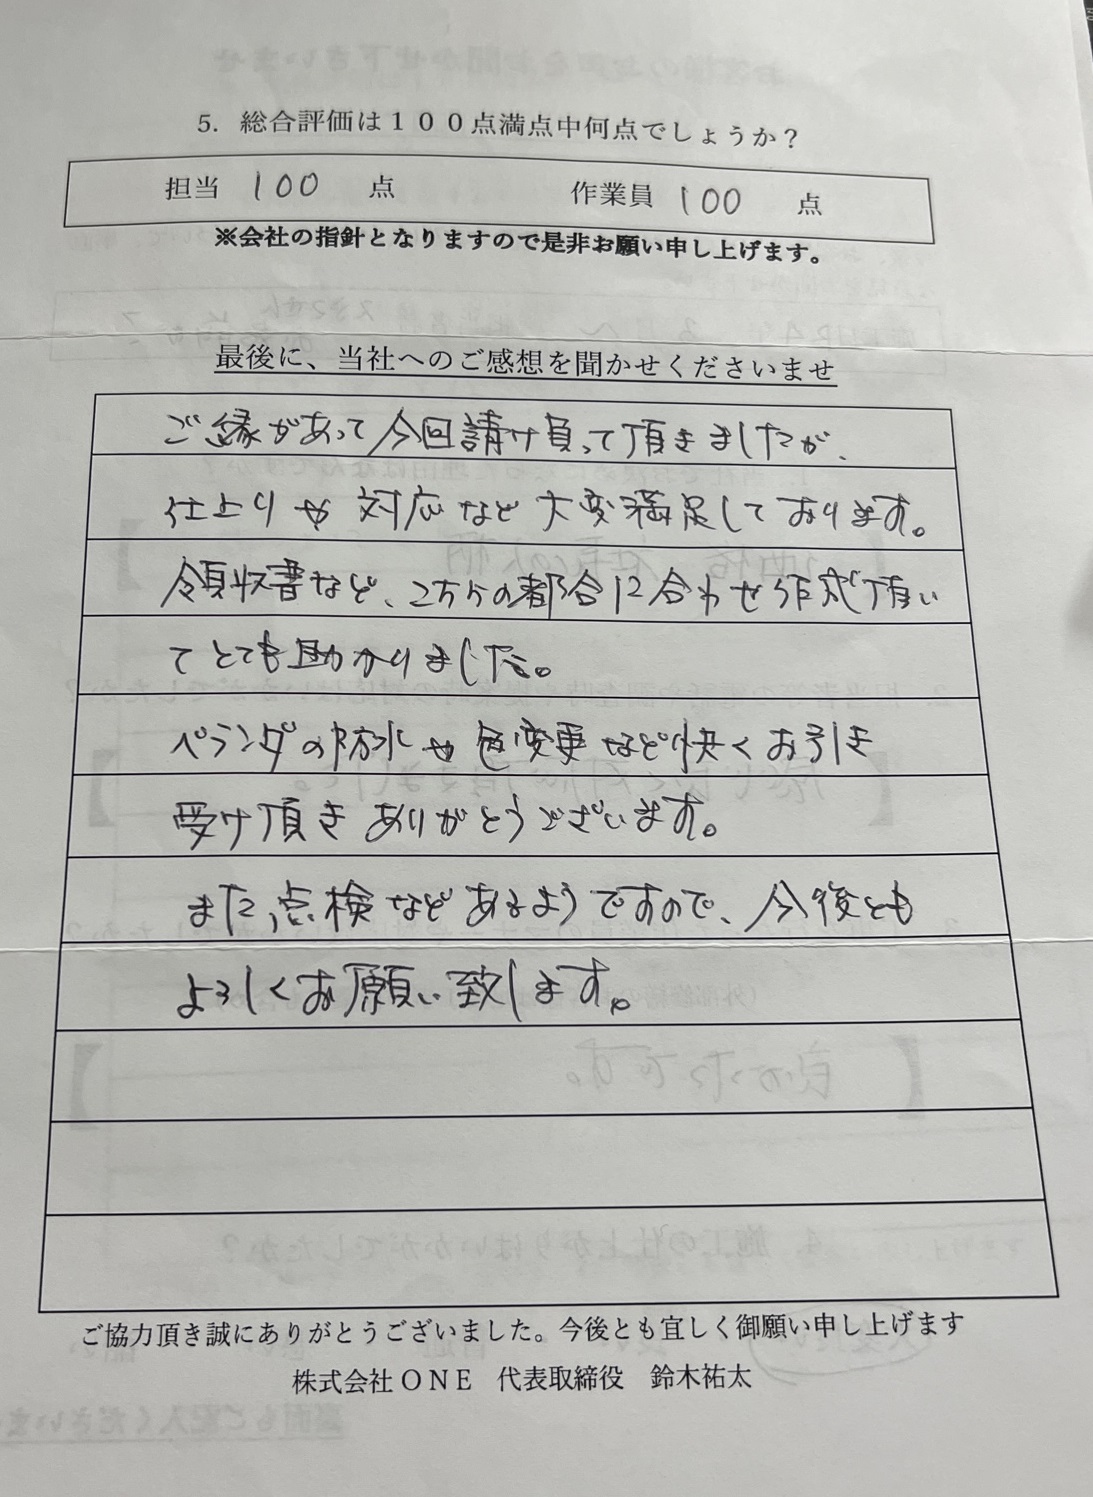 5. 総合評価は１００点満点中何点でしょうか？
担当 100 点 作業員 100 点
※会社の指針となりますので是非お願い申し上げます。
最後に、当社へのご感想を聞かせくださいませ
ご縁があって今回請け負って頂きましたが、
仕上りや対応など大変満足しております。
領収書など、こちらの都合に合わせ作成頂い
てとても助かりました。
ベランダの防水や色変更など快くお引き
受け頂きありがとうございます。
また、点検などあるようですので、今後とも
よろしくお願い致します。
ご協力頂き誠にありがとうございました。今後とも宜しく御願い申し上げます
株式会社ＯＮＥ 代表取締役 鈴木祐太